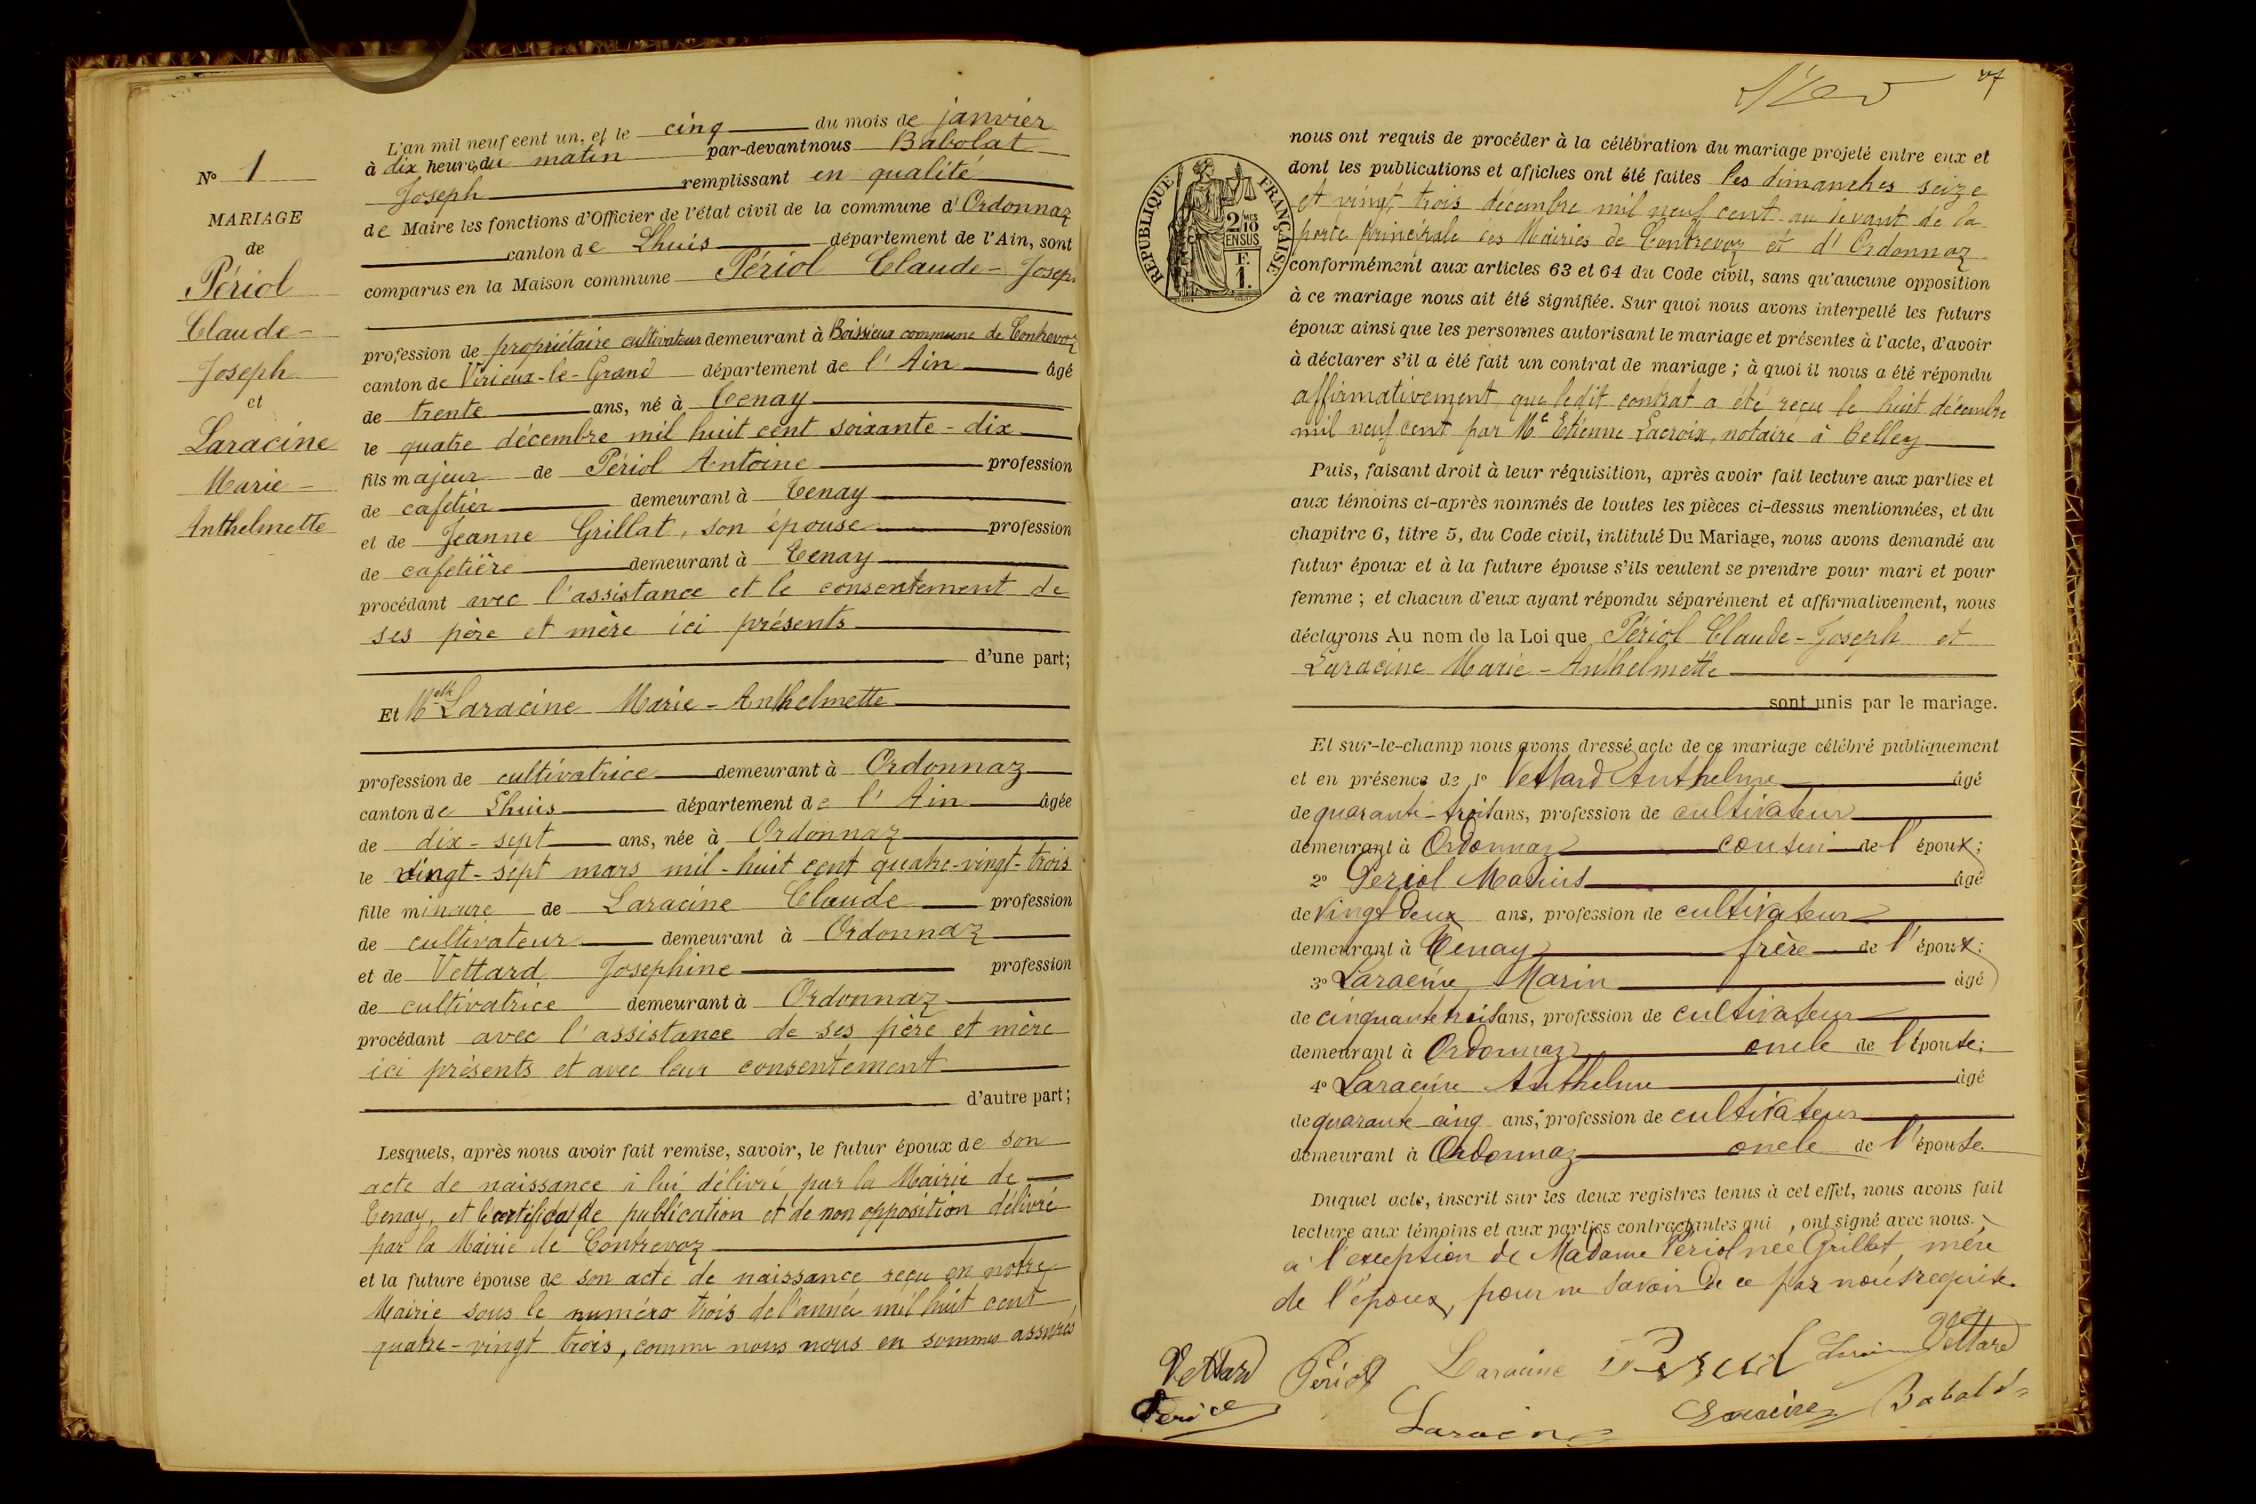 N° 1
MARIAGE
de
Périol
Claude-
Joseph
et
Laracine
Marie-
Anthelmette
L'an mil neuf cent un, et le cinq du mois de janvier
à dix heures du matin par-devant nous Babolat
Joseph remplissant en qualité
de Maire les fonctions d'Officier de l'état civil de la commune d'Ordonnaz
canton de Lhuis département de l'Ain, sont
comparus en la Maison commune Périol Claude-Joseph
profession de propriétaire cultivateur demeurant à Boissieu commune de Contrevoz
canton de Virieux-le-Grand département de l'Ain âgé
de trente ans, né à Tenay
le quatre décembre mil huit cent soixante-dix
fils majeur de Périol Antoine profession
de cafetier demeurant à Tenay
et de Jeanne Grillat, son épouse profession
de cafetière demeurant à Tenay
procédant avec l'assistance et le consentement de
ses père et mère ici présents
d'une part;
Et Melle Laracine Marie-Anthelmette
profession de cultivatrice demeurant à Ordonnaz
canton de Lhuis département de l'Ain âgée
de dix-sept ans, née à Ordonnaz
le vingt-sept mars mil-huit cent quatre-vingt-trois
fille mineure de Laracine Claude profession
de cultivateur demeurant à Ordonnaz
et de Vettard Josephine profession
de cultivatrice demeurant à Ordonnaz
procédant avec l'assistance de ses père et mère
ici présents et avec leur consentement
d'autre part;
Lesquels, après nous avoir fait remise, savoir, le futur époux de son
acte de naissance à lui délivré par la Mairie de
Tenay, et le certificat de publication et de non opposition délivré
par la Mairie de Contrevoz
et la future épouse de son acte de naissance reçu en notre
Mairie sous le numéro trois de l'année mil huit cent
quatre-vingt trois, comme nous nous en sommes assurés
RÉPUBLIQUE FRANÇAISE
2 MES
10
EN SUS
F.
1.
nous ont requis de procéder à la célébration du mariage projeté entre eux et
dont les publications et affiches ont été faites les dimanches seize
et vingt trois décembre mil neuf cent au devant de la
porte principale des Mairies de Contrevoz et d'Ordonnaz
conformément aux articles 63 et 64 du Code civil, sans qu'aucune opposition
à ce mariage nous ait été signifiée. Sur quoi nous avons interpellé les futurs
époux ainsi que les personnes autorisant le mariage et présentes à l'acte, d'avoir
à déclarer s'il a été fait un contrat de mariage; à quoi il nous a été répondu
affirmativement que ledit contrat a été reçu le huit décembre
mil neuf cent par Me Etienne Lacroix, notaire à Belley
Puis, faisant droit à leur réquisition, après avoir fait lecture aux parties et
aux témoins ci-après nommés de toutes les pièces ci-dessus mentionnées, et du
chapitre 6, titre 5, du Code civil, intitulé Du Mariage, nous avons demandé au
futur époux et à la future épouse s'ils veulent se prendre pour mari et pour
femme; et chacun d'eux ayant répondu séparément et affirmativement, nous
déclarons Au nom de la Loi que Périol Claude-Joseph et
Laracine Marie-Anthelmette
sont unis par le mariage.
Et sur-le-champ nous avons dressé acte de ce mariage célébré publiquement
et en présence de 1° Vettard Anthelme âgé
de quarante-trois ans, profession de cultivateur
demeurant à Ordonnaz cousin de l'époux;
2° Periol Marius âgé
de vingt deux ans, profession de cultivateur
demeurant à Tenay frère de l'époux;
3° Laracine Marin âgé
de cinquante trois ans, profession de cultivateur
demeurant à Ordonnaz oncle de l'épouse;
4° Laracine Anthelme âgé
de quarante cinq ans, profession de cultivateur
demeurant à Ordonnaz oncle de l'épouse.
Duquel acte, inscrit sur les deux registres tenus à cet effet, nous avons fait
lecture aux témoins et aux parties contractantes qui, ont signé avec nous.
à l'exception de Madame Periol née Grillat, mère
de l'époux, pour ne savoir de ce par nous requise.
Vettard Périol Laracine Periol Vettard
Periol Laracine Laracine Babolat